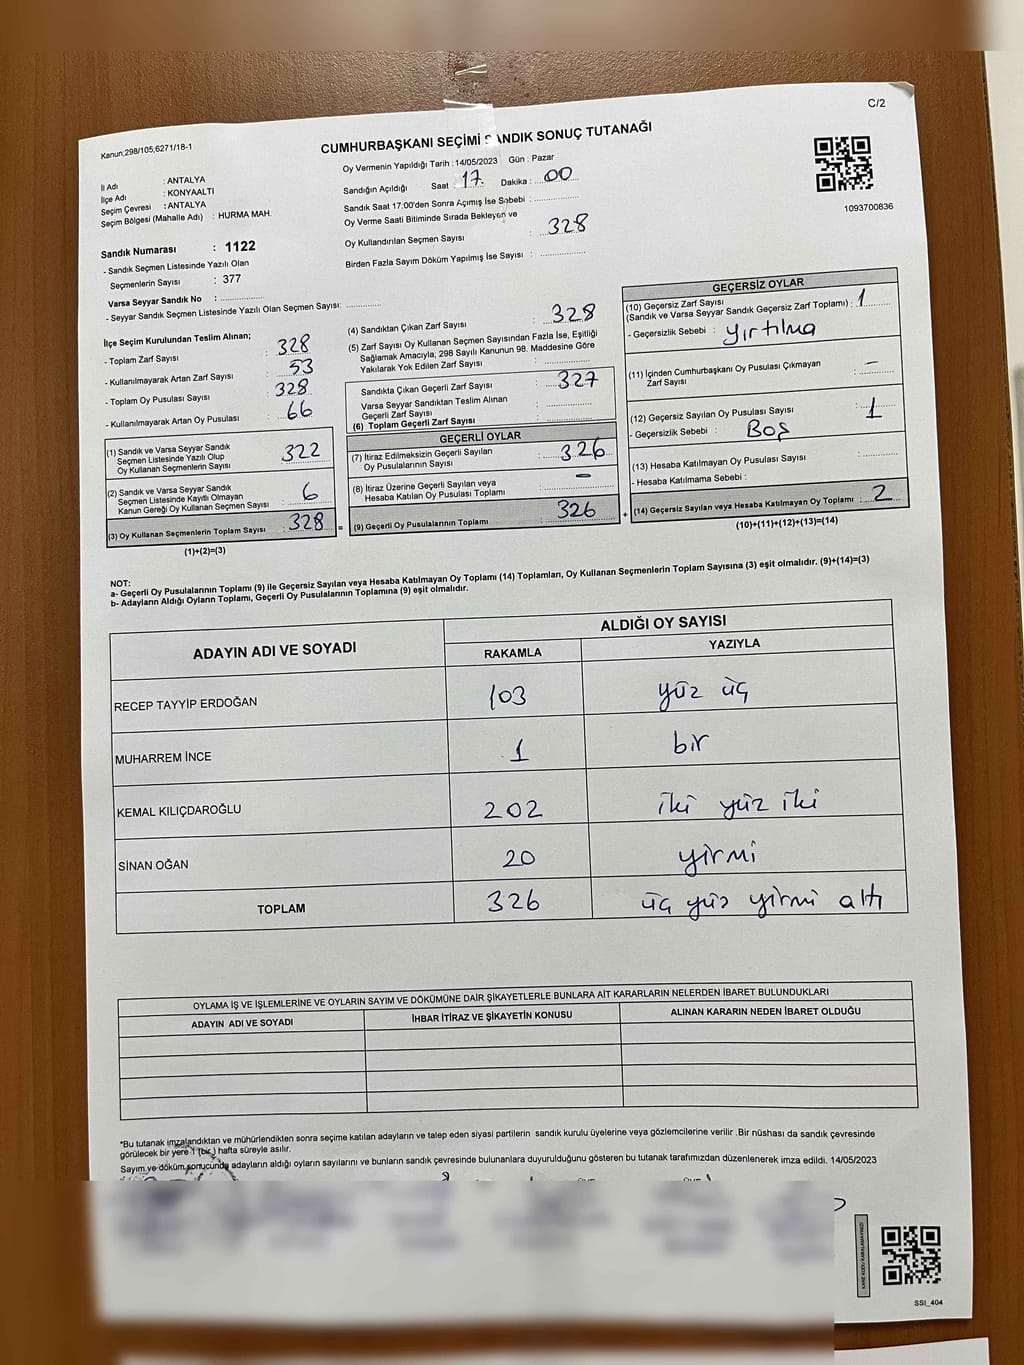 C/2
Kanun:298/105,6271/18-1
CUMHURBAŞKANI SEÇİMİ SANDIK SONUÇ TUTANAĞI
İl Adı : ANTALYA
İlçe Adı : KONYAALTI
Seçim Çevresi : ANTALYA
Seçim Bölgesi (Mahalle Adı) : HURMA MAH.
Sandık Numarası : 1122
- Sandık Seçmen Listesinde Yazılı Olan
Seçmenlerin Sayısı : 377
Varsa Seyyar Sandık No :
- Seyyar Sandık Seçmen Listesinde Yazılı Olan Seçmen Sayısı:
Oy Vermenin Yapıldığı Tarih : 14/05/2023 Gün : Pazar
Sandığın Açıldığı Saat : 17 Dakika : 00
Sandık Saat 17:00'den Sonra Açımış İse Sebebi :
Oy Verme Saati Bitiminde Sırada Bekleyen ve
Oy Kullandırılan Seçmen Sayısı : 328
Birden Fazla Sayım Döküm Yapılmış İse Sayısı :
1093700836
İlçe Seçim Kurulundan Teslim Alınan;
- Toplam Zarf Sayısı : 328
- Kullanılmayarak Artan Zarf Sayısı : 53
- Toplam Oy Pusulası Sayısı : 328
- Kullanılmayarak Artan Oy Pusulası : 66
(1) Sandık ve Varsa Seyyar Sandık
Seçmen Listesinde Yazılı Olup
Oy Kullanan Seçmenlerin Sayısı : 322
(2) Sandık ve Varsa Seyyar Sandık
Seçmen Listesinde Kayıtlı Olmayan
Kanun Gereği Oy Kullanan Seçmen Sayısı : 6
(3) Oy Kullanan Seçmenlerin Toplam Sayısı : 328
(1)+(2)=(3)
(4) Sandıktan Çıkan Zarf Sayısı : 328
(5) Zarf Sayısı Oy Kullanan Seçmen Sayısından Fazla İse, Eşitliği
Sağlamak Amacıyla, 298 Sayılı Kanunun 98. Maddesine Göre
Yakılarak Yok Edilen Zarf Sayısı :
Sandıkta Çıkan Geçerli Zarf Sayısı : 327
Varsa Seyyar Sandıktan Teslim Alınan
Geçerli Zarf Sayısı :
(6) Toplam Geçerli Zarf Sayısı :
GEÇERLİ OYLAR
(7) İtiraz Edilmeksizin Geçerli Sayılan
Oy Pusulalarının Sayısı : 326
(8) İtiraz Üzerine Geçerli Sayılan veya
Hesaba Katılan Oy Pusulası Toplamı : -
= (9) Geçerli Oy Pusulalarının Toplamı : 326
GEÇERSİZ OYLAR
(10) Geçersiz Zarf Sayısı
(Sandık ve Varsa Seyyar Sandık Geçersiz Zarf Toplamı) : 1
- Geçersizlik Sebebi : yırtılma
(11) İçinden Cumhurbaşkanı Oy Pusulası Çıkmayan
Zarf Sayısı : -
(12) Geçersiz Sayılan Oy Pusulası Sayısı : 1
- Geçersizlik Sebebi : Boş
(13) Hesaba Katılmayan Oy Pusulası Sayısı :
- Hesaba Katılmama Sebebi :
+ (14) Geçersiz Sayılan veya Hesaba Katılmayan Oy Toplamı : 2
(10)+(11)+(12)+(13)=(14)
NOT:
a- Geçerli Oy Pusulalarının Toplamı (9) ile Geçersiz Sayılan veya Hesaba Katılmayan Oy Toplamı (14) Toplamları, Oy Kullanan Seçmenlerin Toplam Sayısına (3) eşit olmalıdır. (9)+(14)=(3)
b- Adayların Aldığı Oyların Toplamı, Geçerli Oy Pusulalarının Toplamına (9) eşit olmalıdır.
ADAYIN ADI VE SOYADI ALDIĞI OY SAYISI
RAKAMLA YAZIYLA
RECEP TAYYİP ERDOĞAN 103 yüz üç
MUHARREM İNCE 1 bir
KEMAL KILIÇDAROĞLU 202 iki yüz iki
SİNAN OĞAN 20 yirmi
TOPLAM 326 üç yüz yirmi altı
OYLAMA İŞ VE İŞLEMLERİNE VE OYLARIN SAYIM VE DÖKÜMÜNE DAİR ŞİKAYETLERLE BUNLARA AİT KARARLARIN NELERDEN İBARET BULUNDUKLARI
ADAYIN ADI VE SOYADI İHBAR İTİRAZ VE ŞİKAYETİN KONUSU ALINAN KARARIN NEDEN İBARET OLDUĞU
*Bu tutanak imzalandıktan ve mühürlendikten sonra seçime katılan adayların ve talep eden siyasi partilerin sandık kurulu üyelerine veya gözlemcilerine verilir .Bir nüshası da sandık çevresinde
görülecek bir yere 1 (bir ) hafta süreyle asılır.
Sayım ve döküm sonucunda adayların aldığı oyların sayılarını ve bunların sandık çevresinde bulunanlara duyurulduğunu gösteren bu tutanak tarafımızdan düzenlenerek imza edildi. 14/05/2023
SSI_404